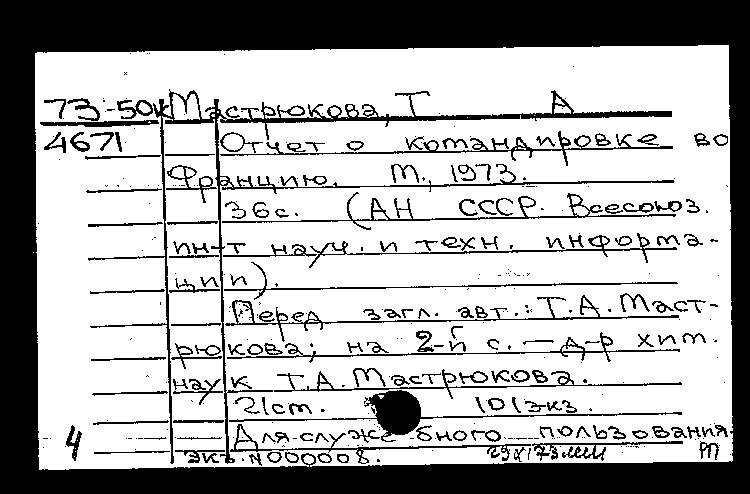 73-50к Мастрюкова, Т А
4671 Отчет о командировке во
Францию. М., 1973.
36с. (АН СССР. Всесоюз.
ин-т науч. и техн. информа-
ции).
Перед загл. авт.: Т.А. Маст-
рюкова; на 2-й с. — д-р хим.
наук Т.А. Мастрюкова.
21см. 101экз.
Для служебного пользования.
4 экз. N000008. 29 173 РП